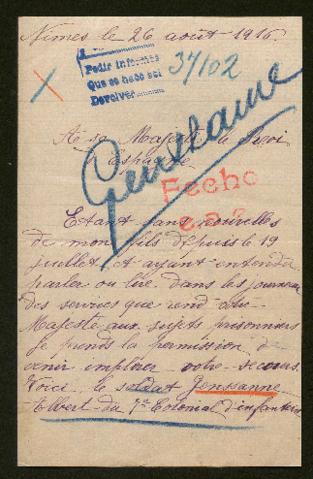 Nimes le 26 août 1916.
Pedir informes
Que se hace así
Devolver
37/102
A sa Majesté le Roi
d'Espagne
Genssanne
Fecho
Etant sans nouvelles
de mon fils depuis le 19
juillet et ayant entendu
parler ou lire dans les journeau
des services que rend votre
Majesté aux sujets prisonniers
je prends la permission de
venir implorer votre secours.
Voici le soldat Genssanne
Elbert du 7e Colonial d'infanterie